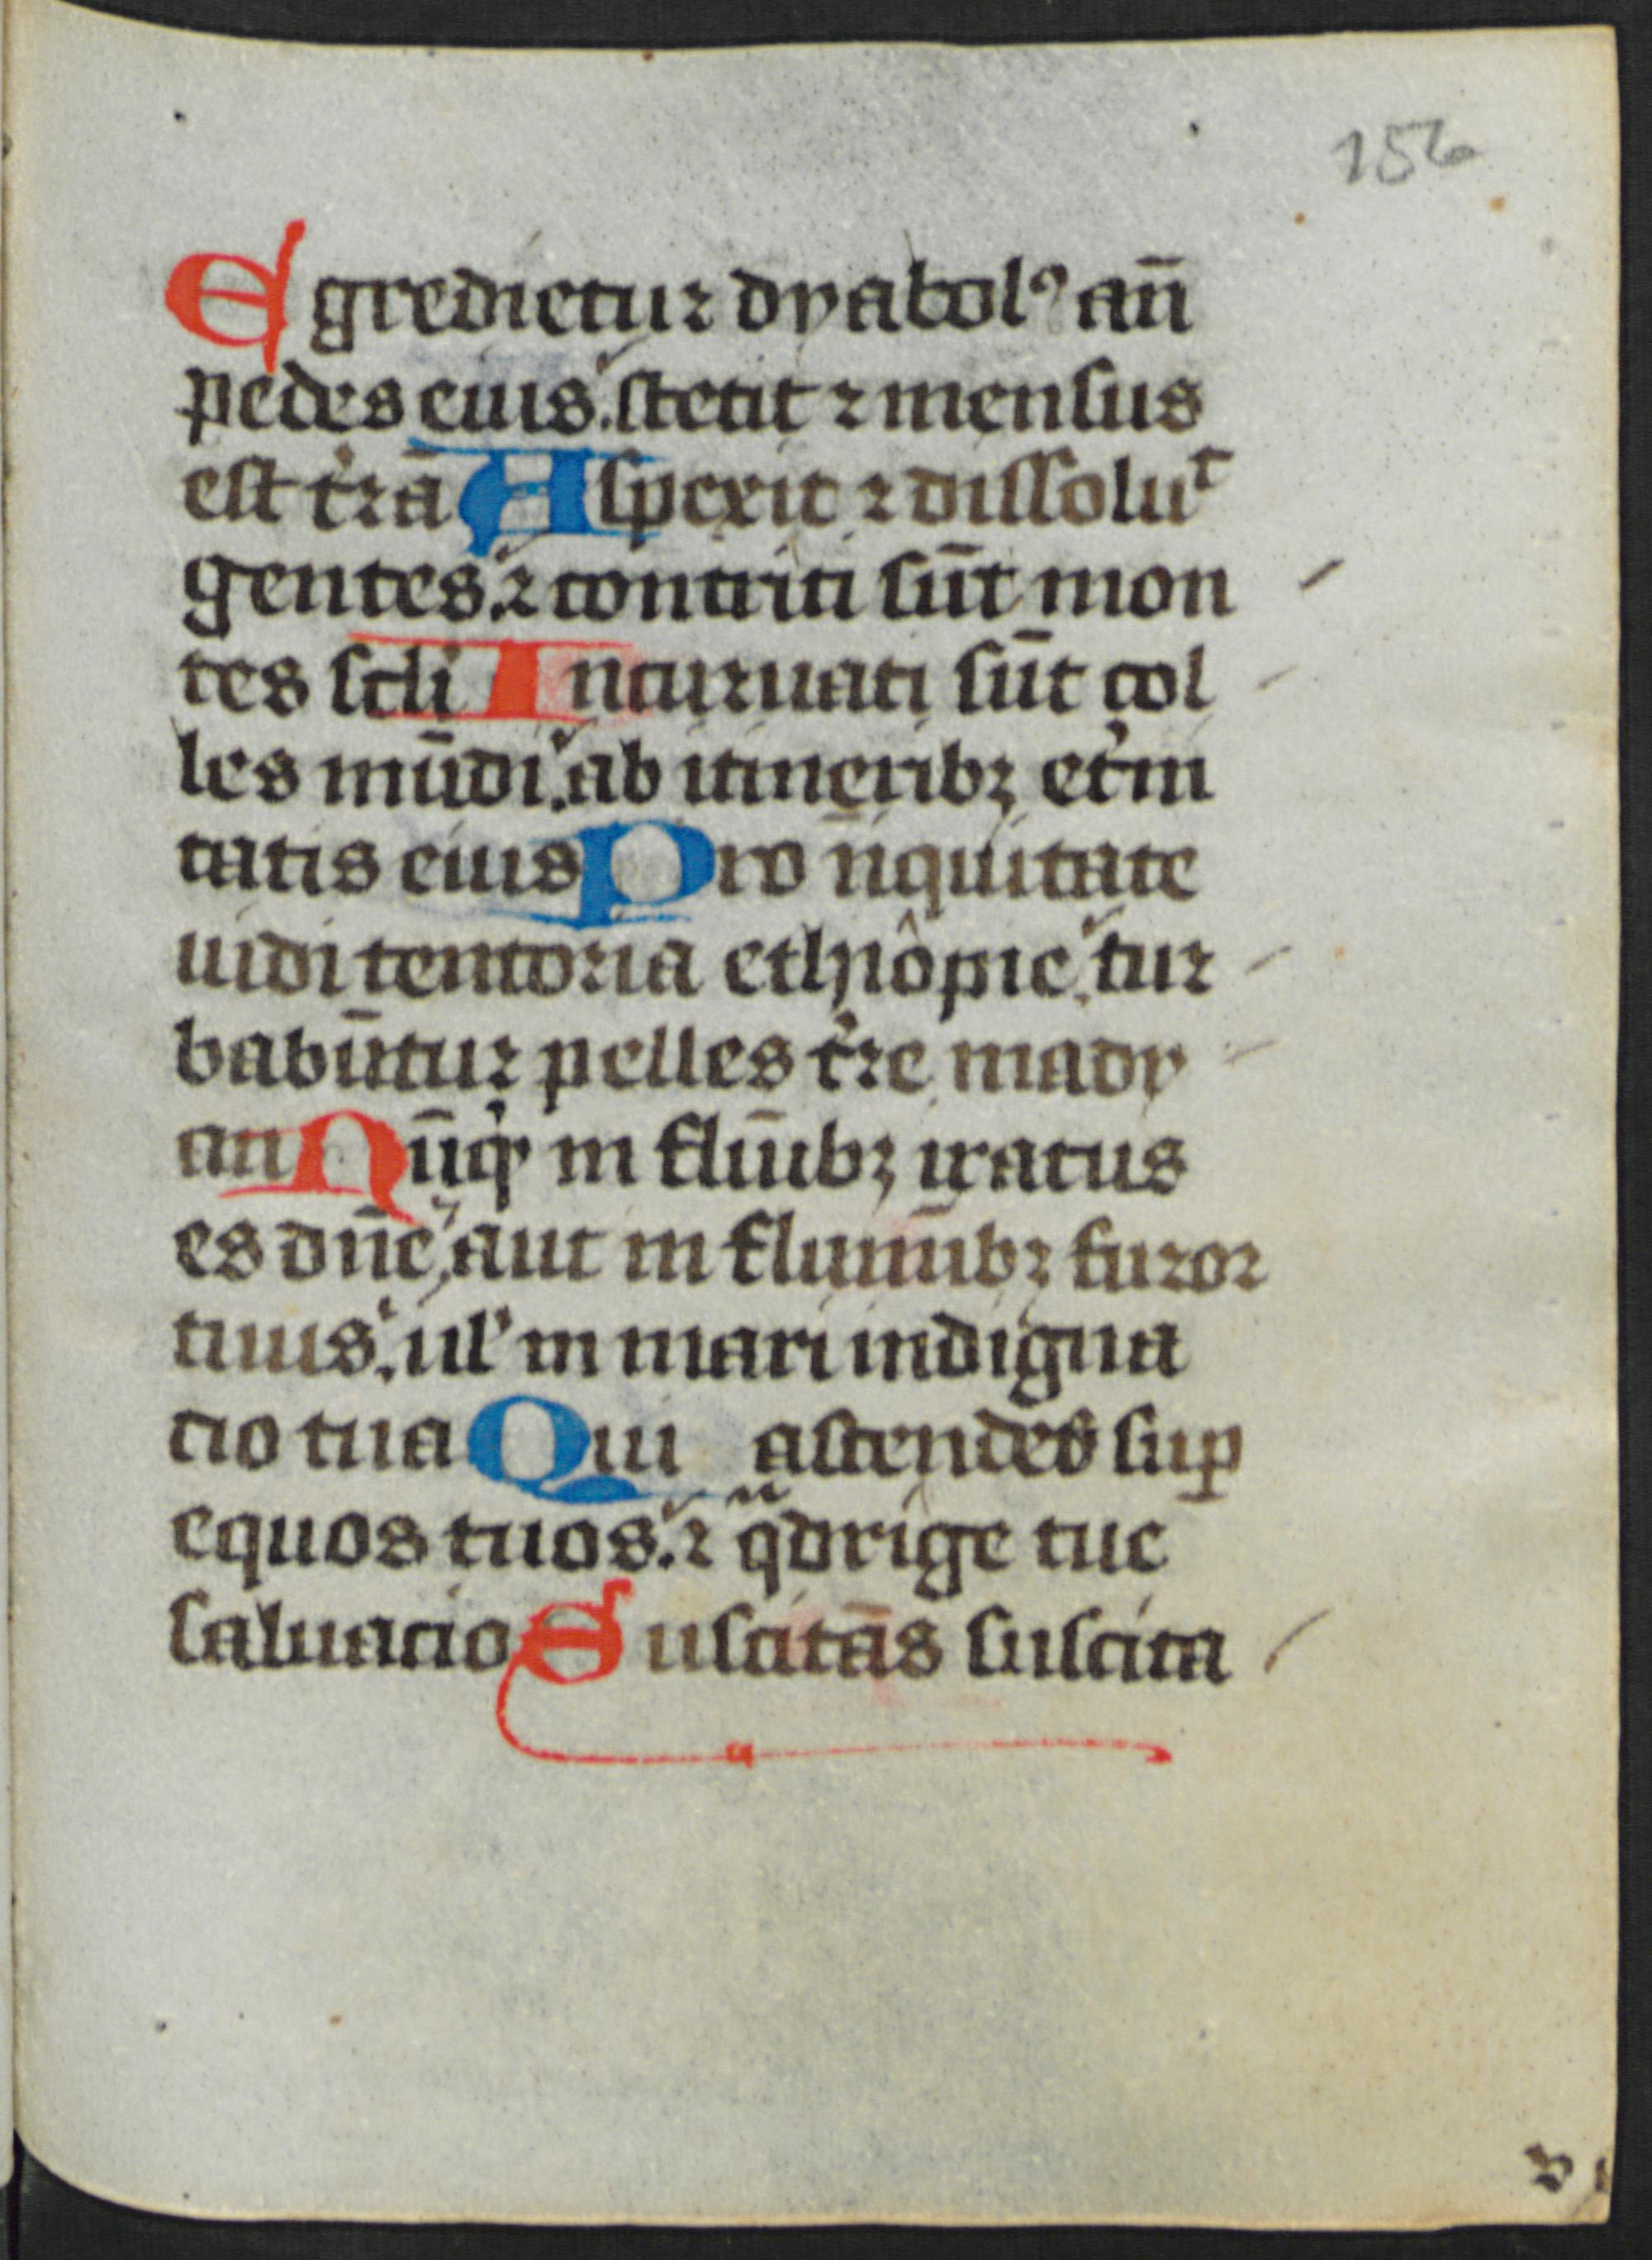 156
Egredietur dyabolꝰ an̄
pedes eius. stetit ⁊ mensus
est t͛rā Aspexit ⁊ dissoluͭ
gentes. ⁊ contriti sūt mon
tes sc̄li Incuruati sūt col
les mūdi. ab itineribꝫ et͛ni
tatis eius Pro īiquitate
uidi tentoria ethiopie tur
babūtur pelles t͛re mady
an Nūqͥ in flūībꝫ iratus
es dn̄e, aut in fluminībꝫ furor
tuus. ul' in mari indigna
cio tua Qui ascendes suꝑ
equos tuos. ⁊ qͣdrige tue
saluacio Suscitās suscita